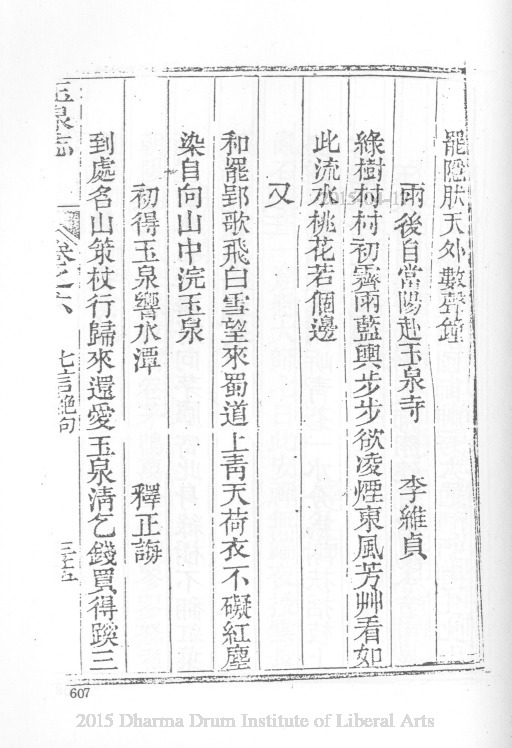 罷隱肰天外數聲鐘
雨後自當陽赴玉泉寺 李維貞
綠樹村村初霽雨藍輿步步欲凌煙東風芳艸看如
此流水桃花若個邊
又
和罷郢歌飛白雪望來蜀道上青天荷衣不礙紅塵
染自向山中浣玉泉
初得玉泉響水潭 釋正誨
到處名山策杖行歸來還愛玉泉清乞錢買得蹊三
玉泉志 卷之六 七言絕句 三十五
607
2015 Dharma Drum Institute of Liberal Arts